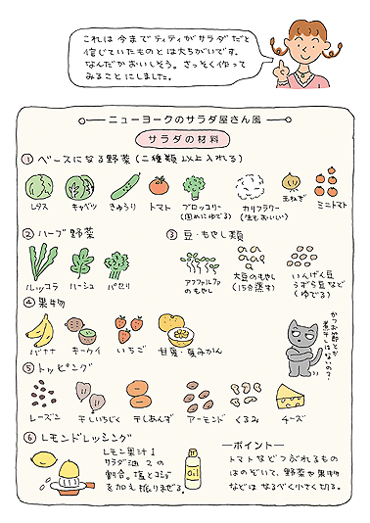 これは今までティティがサラダだと
信じていたものとは大ちがいです。
なんだかおいしそう。さっそく作って
みることにしました。
ニューヨークのサラダ屋さん風
サラダの材料
① ベースになる野菜(二種類以上入れる)
レタス
キャベツ
きゅうり
トマト
ブロッコリー
(固めにゆでる)
カリフラワー
(生もおいしい)
玉ねぎ
ミニトマト
② ハーブ野菜
ルッコラ
ルーシュ
パセリ
③ 豆・もやし類
アルファルファ
のもやし
大豆のもやし
(15分蒸す)
いんげん豆
うずら豆など
(ゆでる)
④ 果物
バナナ
キーウイ
いちご
甘夏・夏みかん
かつお節とか
煮干しはないの?
⑤ トッピング
レーズン
干しいちじく
干しあんず
アーモンド
くるみ
チーズ
⑥ レモンドレッシング
レモン果汁1
サラダ油2の
割合。塩とコショウ
を加え振りまぜる。
油
―ポイント―
トマトなどつぶれるもの
はのぞいて、野菜や果物
などはなるべく小さく切る。